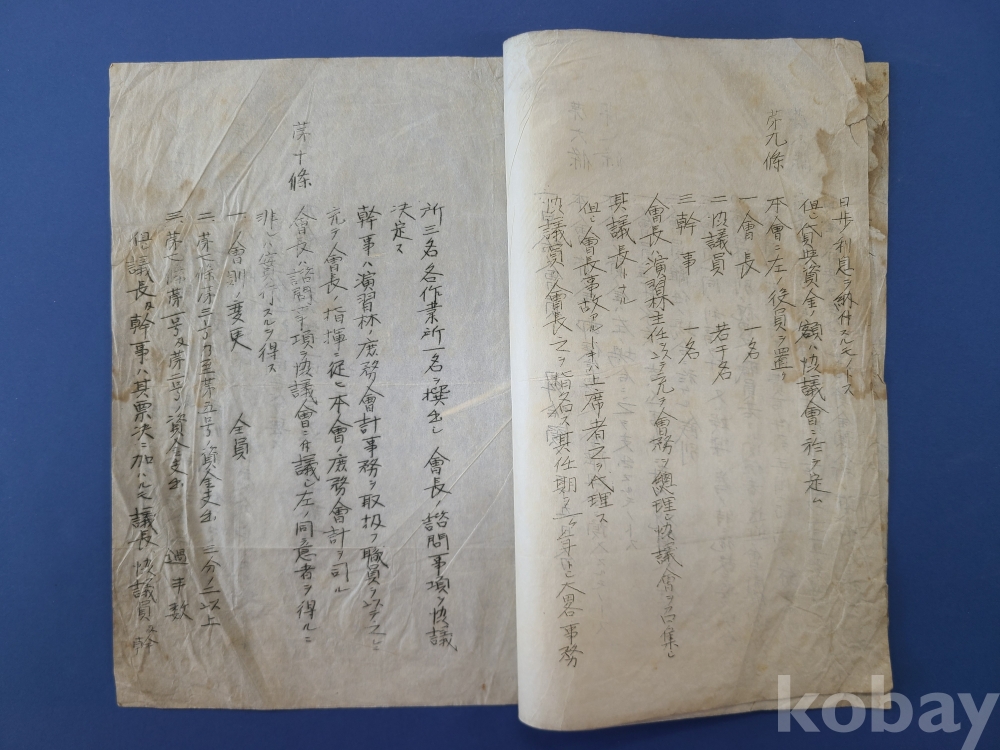 日歩利息ヲ納付スルモノトス
但シ貸與資金ノ額ハ協議會ニ於テ定ム
第九條
本會ニ左ノ役員ヲ置ク
一 會長 一名
二 協議員 若干名
三 幹事 一名
會長ハ演習林主任ヲ以テ之ニ充テ會務ヲ總理シ協議會ヲ召集シ
其議長トナル
但シ會長事故アルトキハ上席者之ヲ代理ス
協議員ハ會長之ヲ指名ス其任期ハ 大畧事務
所三名各作業所一名ヲ撰出シ會長ノ諮問事項ヲ協議
決定ス
幹事ハ演習林ノ庶務會計事務ヲ取扱フ職員ヲ以テ之ニ
充テ會長ノ指揮ニ従ヒ本會ノ庶務會計ヲ司ル
第十條
會長ハ諮問事項ヲ協議會ニ付議シ左ノ同意者ヲ得ルニ
非レハ實行スルヲ得ス
一 會則ノ変更 全員
二 第七條第三号乃至第五号ノ資金支出 三分ノ二以上
三 第七條第一号及第二号ノ資金支出 過半数
但シ議長及幹事ハ其票決ニ加ハルモ議長協議員及幹
kobay